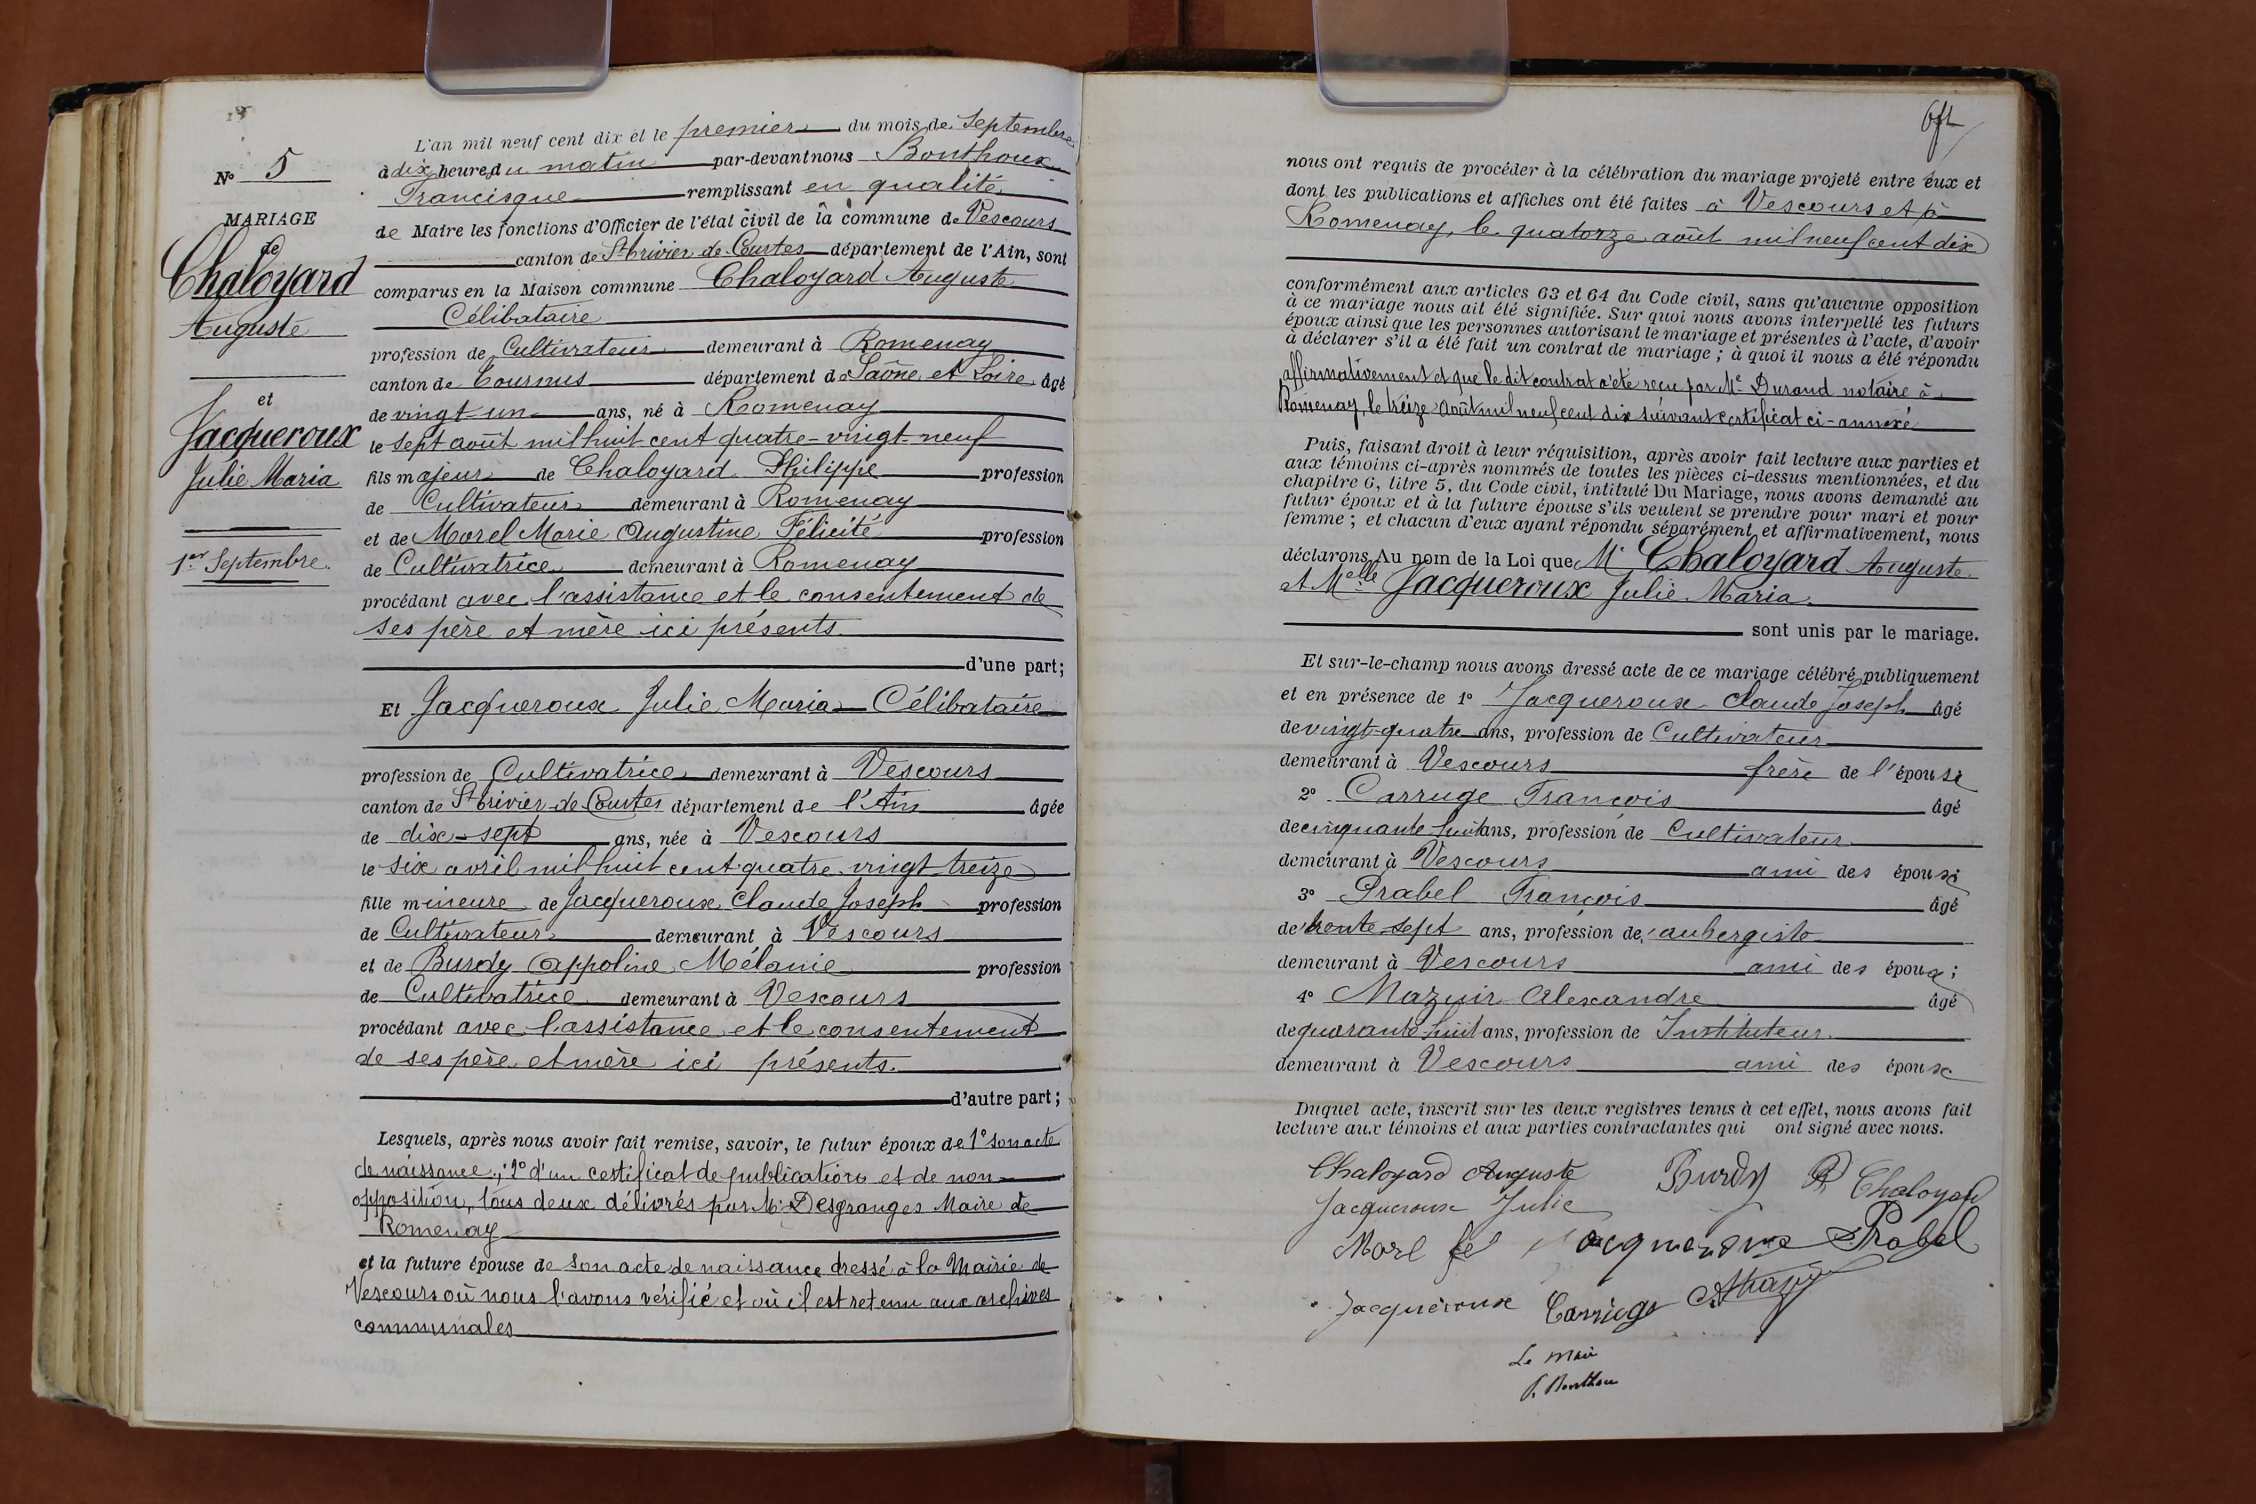 N° 5
MARIAGE
de
Chaloyard
Auguste
et
Jacqueroux
Julie Maria
1er Septembre.
L'an mil neuf cent dix et le premier du mois de Septembre
à dix heures du matin par-devant nous Bonthoux
Francisque remplissant en qualité
de Maire les fonctions d'Officier de l'état civil de la commune de Vescours
canton de St Trivier de Courtes département de l'Ain, sont
comparus en la Maison commune Chaloyard Auguste
Célibataire
profession de Cultivateur demeurant à Romenay
canton de Tournus département de Saône et Loire âgé
de vingt-un ans, né à Romenay
le sept août mil huit cent quatre-vingt-neuf
fils majeur de Chaloyard Philippe profession
de Cultivateur demeurant à Romenay
et de Morel Marie Augustine Félicité profession
de Cultivatrice demeurant à Romenay
procédant avec l'assistance et le consentement de
ses père et mère ici présents.
d'une part;
Et Jacqueroux Julie Maria Célibataire
profession de Cultivatrice demeurant à Vescours
canton de St Trivier de Courtes département de l'Ain âgée
de dix-sept ans, née à Vescours
le six avril mil huit cent quatre vingt treize
fille mineure de Jacqueroux Claude Joseph profession
de Cultivateur demeurant à Vescours
et de Burdy Appoline Mélanie profession
de Cultivatrice demeurant à Vescours
procédant avec l'assistance et le consentement
de ses père et mère ici présents.
d'autre part;
Lesquels, après nous avoir fait remise, savoir, le futur époux de 1° son acte
de naissance; 2° d'un certificat de publications et de non
opposition, tous deux délivrés par Mr Desgranges Maire de
Romenay
et la future épouse de son acte de naissance dressé à la Mairie de
Vescours où nous l'avons vérifié et où il est retenu aux archives
communales
nous ont requis de procéder à la célébration du mariage projeté entre eux et
dont les publications et affiches ont été faites à Vescours et à
Romenay, le quatorze août mil neuf cent dix
conformément aux articles 63 et 64 du Code civil, sans qu'aucune opposition
à ce mariage nous ait été signifiée. Sur quoi nous avons interpellé les futurs
époux ainsi que les personnes autorisant le mariage et présentes à l'acte, d'avoir
à déclarer s'il a été fait un contrat de mariage; à quoi il nous a été répondu
affirmativement et que le dit contrat a été reçu par Me Durand notaire à
Romenay, le treize août mil neuf cent dix suivant certificat ci-annexé
Puis, faisant droit à leur réquisition, après avoir fait lecture aux parties et
aux témoins ci-après nommés de toutes les pièces ci-dessus mentionnées, et du
chapitre 6, titre 5, du Code civil, intitulé Du Mariage, nous avons demandé au
futur époux et à la future épouse s'ils veulent se prendre pour mari et pour
femme; et chacun d'eux ayant répondu séparément et affirmativement, nous
déclarons Au nom de la Loi que Mr Chaloyard Auguste
et Melle Jacqueroux Julie Maria.
sont unis par le mariage.
Et sur-le-champ nous avons dressé acte de ce mariage célébré publiquement
et en présence de 1° Jacqueroux Claude Joseph âgé
de vingt-quatre ans, profession de Cultivateur
demeurant à Vescours frère de l'épouse
2° Carruge François âgé
de cinquante huit ans, profession de Cultivateur
demeurant à Vescours ami des époux
3° Prabel François âgé
de trente-sept ans, profession de aubergiste
demeurant à Vescours ami des époux;
4° Mazuir Alexandre âgé
de quarante-huit ans, profession de Instituteur.
demeurant à Vescours ami des époux
Duquel acte, inscrit sur les deux registres tenus à cet effet, nous avons fait
lecture aux témoins et aux parties contractantes qui ont signé avec nous.
Chaloyard Auguste Burdy P Chaloyard
Jacqueroux Julie
Morel fé Jacqueroux Prabel
Jacqueroux Carruge AMazuir
Le Maire
F. Bonthoux